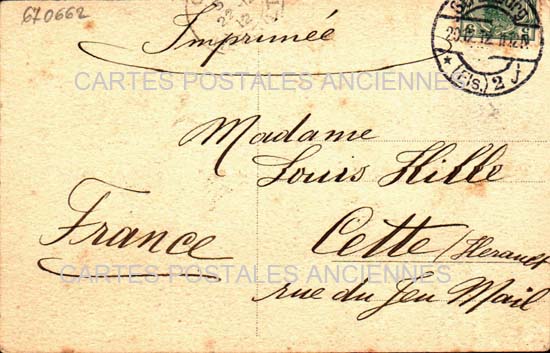 670662
Imprimée
(Els.) 2 j
CARTES POSTALES ANCIENNES
Madame
Louis Hille
France
Cette (Herault
CARTES POSTALES ANCIENNES
rue du Jeu Mail